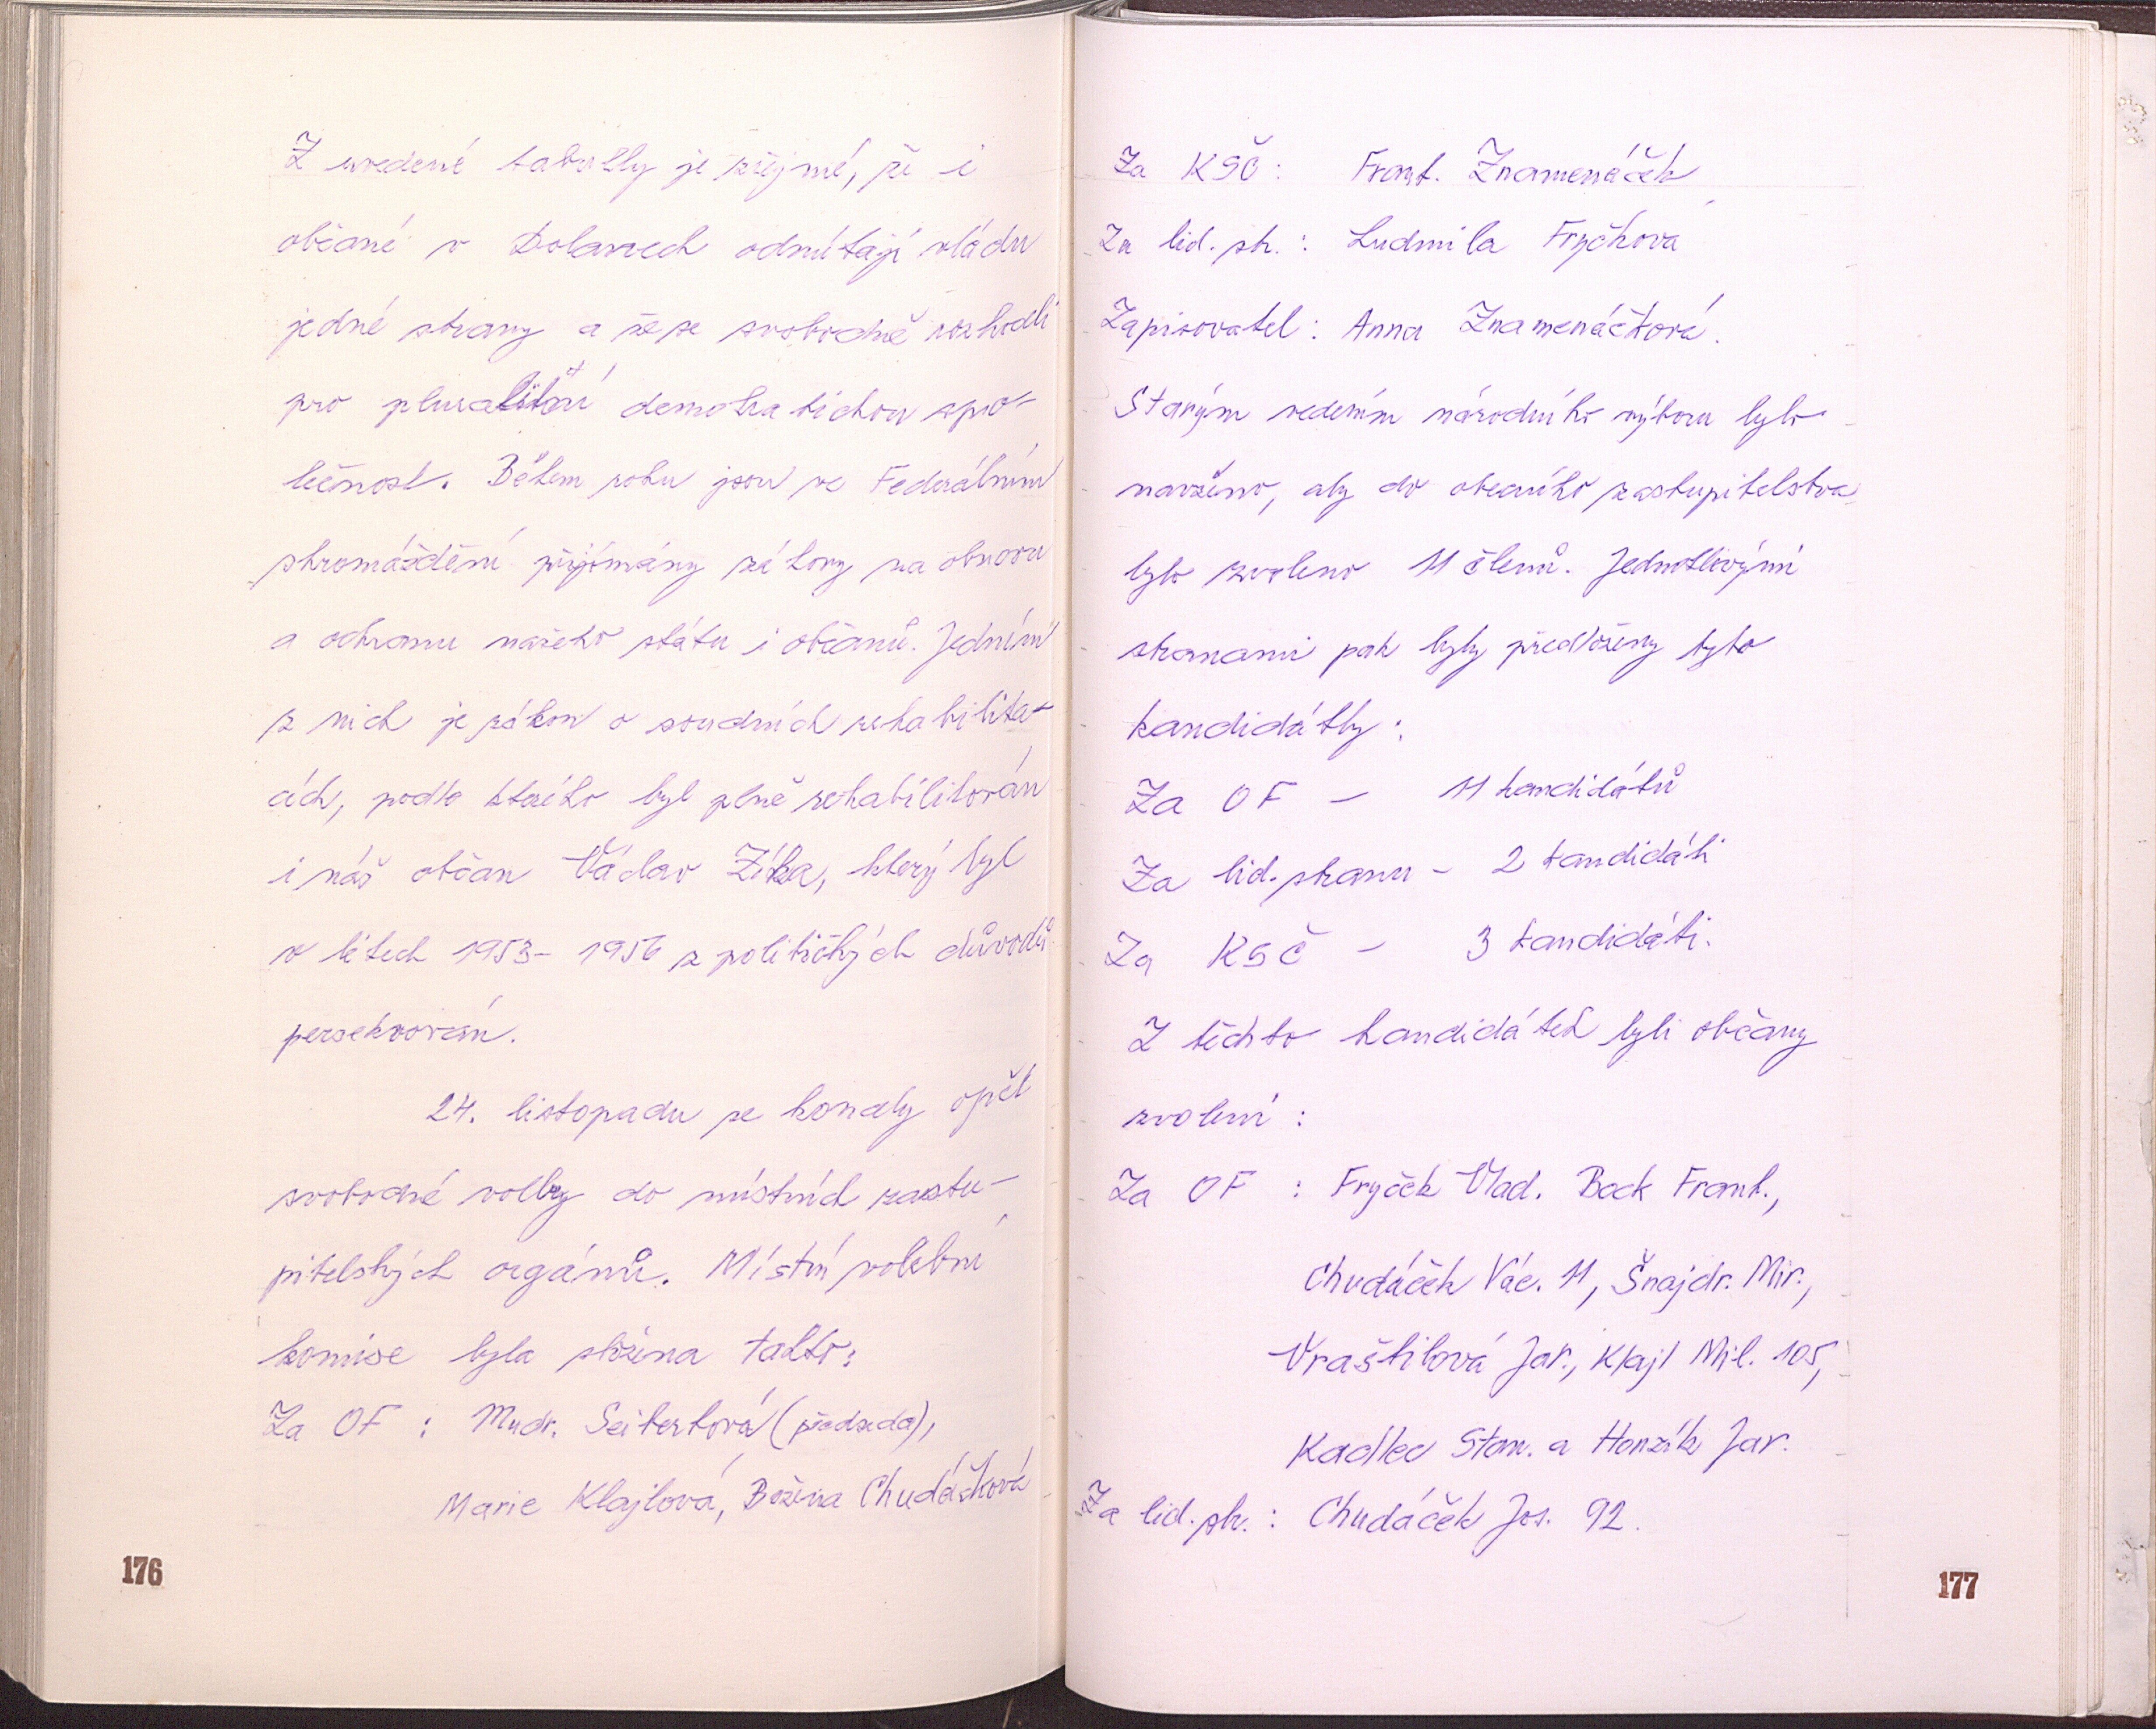 Z uvedené tabulky je zřejmé, že i
občané v Dolanech odmítají vládu
jedné strany a že se svobodně rozhodli
pro pluralitní demokratickou spo-
lečnost. Během roku jsou ve Federálním
shromáždění přijímány zákony na obnovu
a ochranu našeho státu i občanů. Jedním
z nich je zákon o soudních rehabilita-
cích, podle kterého byl plně rehabilitován
i náš občan Václav Zíka, který byl
v letech 1953-1956 z politických důvodů
persekvován.
24. listopadu se konaly opět
svobodné volby do místních zastu-
pitelských orgánů. Místní volební
komise byla složena takto:
Za OF : Mudr. Seibertová (předseda),
Marie Klajlová, Božena Chudáčková
176
Za KSČ: Frant. Znamenáček
Za lid. str.: Ludmila Fryčková
Zapisovatel: Anna Znamenáčková.
Starým vedením národního výboru bylo
navrženo, aby do obecního zastupitelstva
bylo zvoleno 11 členů. Jednotlivými
stranami pak byly předloženy tyto
kandidátky:
Za OF - 11 kandidátů
Za lid. stranu - 2 kandidáti
Za KSČ - 3 kandidáti.
Z těchto kandidátek byli občany
zvoleni :
Za OF : Fryček Vlad. Bock Frant.,
Chudáček Vác. 11, Šnajdr. Mir.,
Vraštilová Jar., Klajl Mil. 105,
Kadlec Stan. a Honzík Jar.
Za lid. str. : Chudáček Jos. 92.
177